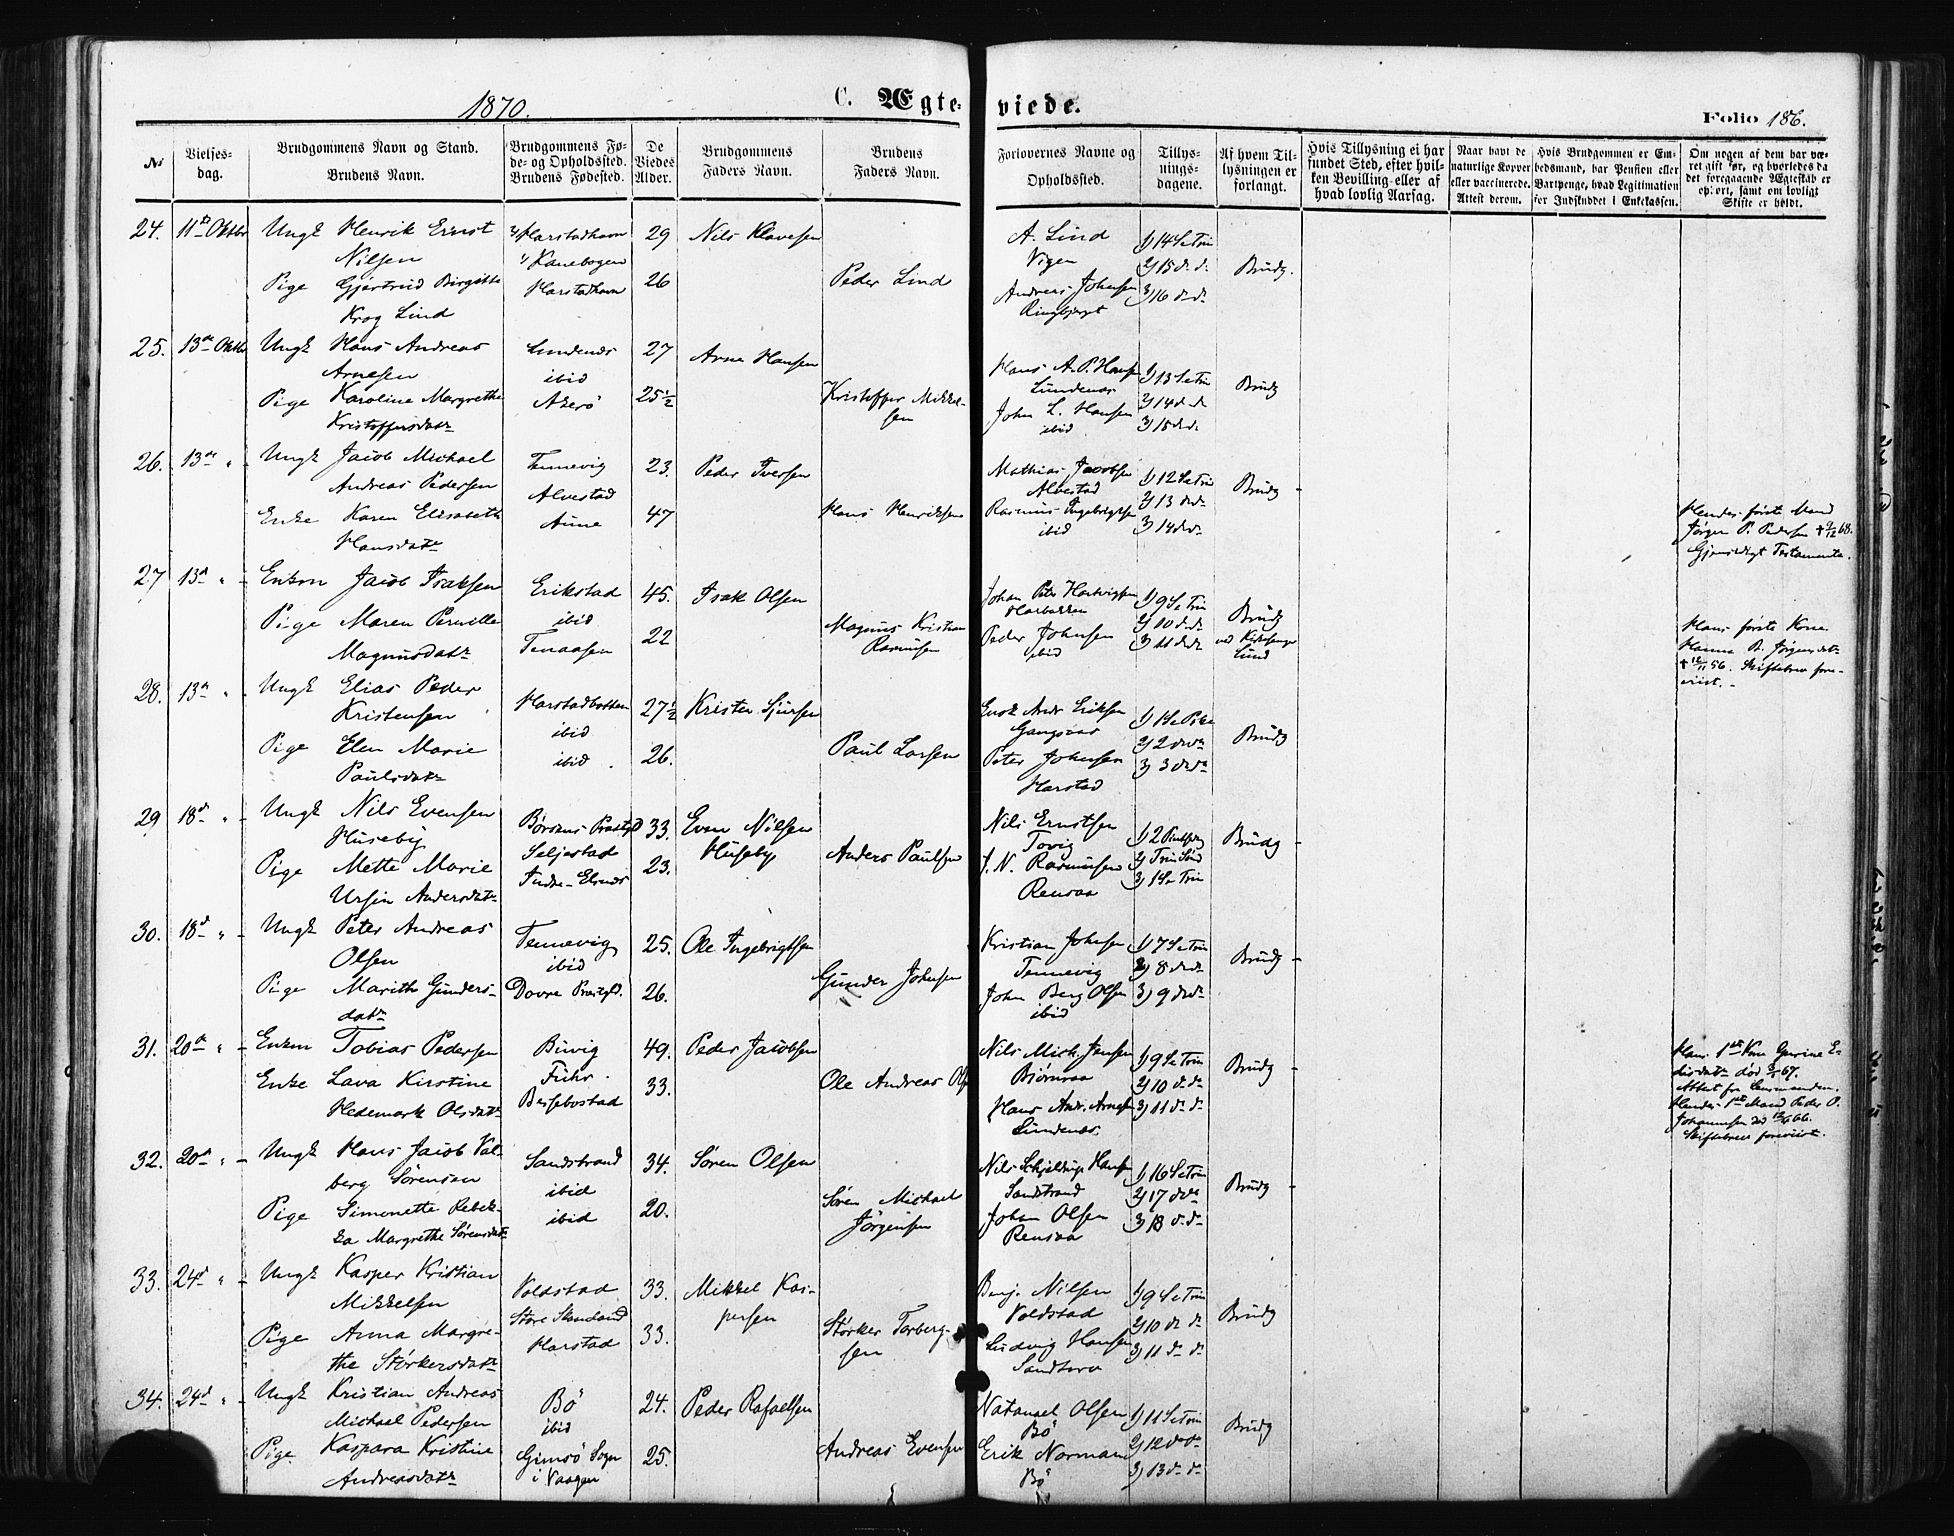 1870.
C. Ægte-
viede.
Folio 186.
№
Vielses-
dag.
Brudgommens Navn og Stand.
Brudens Navn.
Brudgommens Fø-
de- og Opholdssted.
Brudens Fødested.
De
Viedes
Alder.
Brudgommens
Faders Navn.
Brudens
Faders Navn.
Forlovernes Navne og
Opholdssted.
Tillys-
nings-
dagene.
Af hvem Til-
lysningen er
forlangt.
Hvis Tillysning ei har
fundet Sted, efter hvil-
ken Bevilling eller af
hvad lovlig Aarsag.
Naar havt de
naturlige Kopper
eller vaccinerede.
Attest derom.
Hvis Brudgommen er Em-
bedsmand, har Pension eller
Vartpenge, hvad Legitimation
for Indskuddet i Enkekassen.
Om nogen af dem har væ-
ret gift før, og hvorledes da
det foregaaende Ægteskab er
ophørt, samt om lovligt
Skifte er holdt.
24. 11te Oktbr Ungk Henrik Ernst
Nilsen
Pige Gjertrud Birgitte
Krog Lind
Harstadhavn
Kanebogen
Harstadhavn
29
26
Nils Klavesen
Peder Lind
A. Lind
Andreas Johnsen
1) 14 S e Trin
2) 15 d. d.
3) 16 d. d.
Brudg.
25. 13de Oktbr Ungk Hans Andreas
Arnesen
Pige Karoline Margrethe
Kristoffersdatr
Lundenæs
ibid
Akerö
27
25½
Arne Hansen
Kristoffer Mikkel-
sen
Hans A. P. Hansen
Lundenæs
John L. Hansen
ibid
1) 13 S e Trin
2) 14 d. d.
3) 15 d. d.
Brudg
26. 13de " - Ungk Jacob Michael
Andreas Pedersen
Enke Karen Elisabeth
Hansdatr
Tennevig
Alvestad
Aune
23.
47
Peder Iversen
Hans Henriksen
Mathias Jacobsen
Alvestad
Rasmus Ingebrigtsen
ibid
1) 12 S e Trin
2) 13 d. d.
3) 14 d. d.
Brudg -
Hendes første Mand
Jørgen P. Pedersen
Gjensidigt Testamente.
27 13de " - Enkm Jacob Isaksen
Pige Maren Pernille
Magnusdatr
Erikstad
ibid
Tenaasen
45.
22
Isak Olsen
Magnus Kristian
Rasmusen
Johan Peter Hartvigsen
Harbakken
Peder Johnsen
ibid
1) 9 S e Trin
2) 10 d. d.
3) 11 d. d.
Brudg
ved Kirkesanger
Lund
Hans første Kone
Hanna B. Jørgensdatr
28. 13de " Ungk Elias Peder
Kristensen
Pige Elen Marie
Paulsdatr
Harstadbotten
ibid
ibid
27½
26.
Krister Sjursen
Paul Larsen
Enok Andr Eriksen
Gangsaas
Peter Johnsen
Harstad
2) 2 d. d.
3) 3 d. d.
Brudg
29 18de " - Ungk Nils Evensen
Huseby
Pige Mette Marie
Ursin Andersdatr
Børsens Præstgd
Seljestad
Indre-Elgnæs
33.
23.
Even Nilsen
Huseby
Anders Paulsen
Nils Ernstsen
Tovig
J. N. Rasmusen
Rensaa
3) 1 S e Trin
Brudg -
30. 18de " - Ungk Peter Andreas
Olsen
Pige Marith Gunders-
datr
Tennevig
ibid
Dovre Præstgd.
25.
26.
Ole Ingebrigtsen
Gunder Johnsen
Kristian Johnsen
Tennevig
John Berg Olsen
ibid
1) 7 S e Trin
2) 8 d. d.
3) 9 d. d.
Brudg -
31. 20de " - Enkm Tobias Pedersen
Enke Lava Kirstine
Hedemark Olsdatr
Buvig
Bessebostad
49.
33.
Peder Jacobsen
Ole Andreas Ols
Nils Mich. Jensen
Bjørnraa
Hans Andr. Arnesen
Lundenæs
1) 9 S e Trin
2) 10 d. d.
3) 11 d. d.
Brudg -
Hans 1ste Kone Gurine E-
Attest fra Lensmanden.
Hendes 1ste Mand Peder P.
Skiftebrev foreviist.
32. 20de " - Ungk Hans Jacob Val-
berg Sörensen
Pige Simonette Rebek-
ka Margrethe Sörensdatr
Sandstrand
ibid
ibid
34.
20.
Sören Olsen
Sören Michael
Jörgensen
Nils Schjeldrup Hansen
Sandstrand
Johan Olsen
Rensaa
1) 16 S e Trin
2) 17 d. d.
3) 18 d. d.
Brudg -
33. 24de " - Ungk Kasper Kristian
Mikkelsen
Pige Anna Margre-
the Störkersdatr
Voldstad
Store Skanland
Harstad
33.
33.
Mikkel Kas-
persen
Störker Torberg-
sen
Benj. Nilsen
Voldstad
Ludvig Hansen
Sandtorv
1) 9 S e Trin
2) 10 d. d.
3) 11 d. d.
Brudg
34. 24de " - Ungk Kristian Andreas
Michael Pedersen
Pige Kaspara Kristine
Andreasdatr
Bö
ibid
Gimsö Sogn
i Vaagen
24.
25.
Peder Rafaelsen
Andreas Evensen
Natanael Olsen
Bö
Erik Normann
Bö
1) 11 S e Trin
2) 12 d. d.
3) 13 d. d.
Brudg